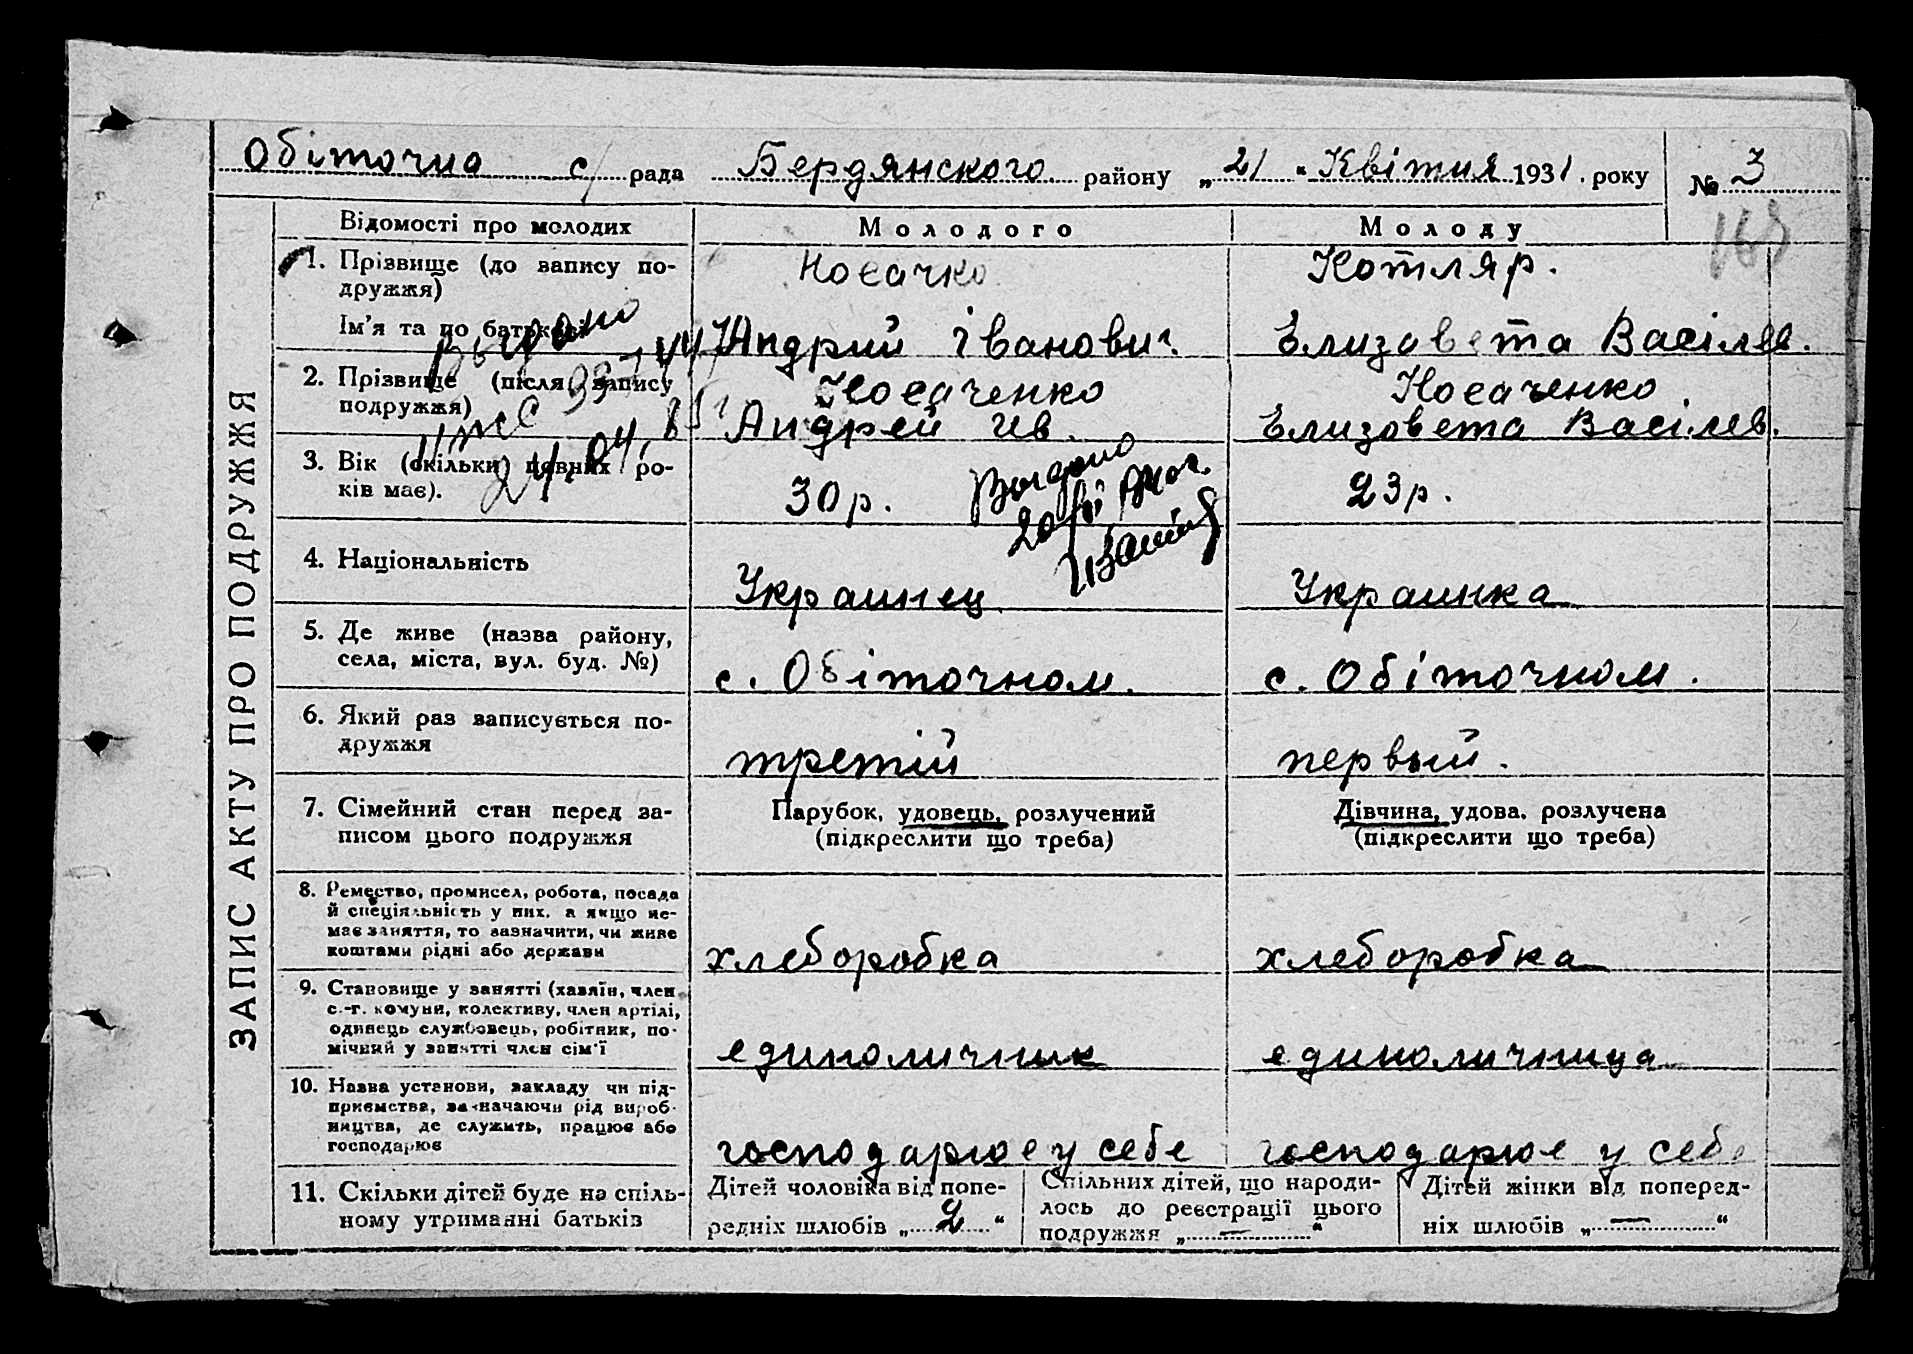 Обіточна с/ рада Бердянского району „21“ Квітня 1931. року № 3
ЗАПИС АКТУ ПРО ПОДРУЖЖЯ
Відомості про молодих Молодого Молоду
1. Прізвище (до запису по-
дружжя)
Носачко Котляр.
Ім'я та по батькові
Андрий Іванович. Елизовета Васілев.
2. Прізвище (після запису
подружжя)
Носаченко Носаченко
Андрей Ив. Елизовета Васілев.
3. Вік (скільки повних ро-
ків має).
30 р. 23 р.
Выдано
Выдано
24.04.85
4. Національність
Украинец Украинка
5. Де живе (назва району,
села, міста, вул. буд. №)
с. Обіточном. с. Обіточном.
6. Який раз записується по-
дружжя
третій первый.
7. Сімейний стан перед за-
писом цього подружжя
Парубок, удовець, розлучений
(підкреслити що треба)
Дівчина, удова, розлучена
(підкреслити що треба)
8. Ремество, промисел, робота, посада
й спеціяльність у них, а якщо не-
має заняття, то зазначити, чи живе
коштами рідні або держави
хлеборобка хлеборобка
9. Становище у занятті (хазяїн, член
с.-г. комуни, колективу, член артілі,
одинець службовець, робітник, по-
мічний у занятті член сім'ї
единоличник единоличница
10. Назва установи, закладу чи під-
приємства, зазначаючи рід вироб-
ництва, де служить, працює або
господарює
господарює у себе господарює у себе
11. Скільки дітей буде на спіль-
ному утриманні батьків
Дітей чоловіка від попе-
редніх шлюбів „2“
Спільних дітей, що народи-
лось до реєстрації цього
подружжя „—“
Дітей жінки від поперед-
ніх шлюбів „—“